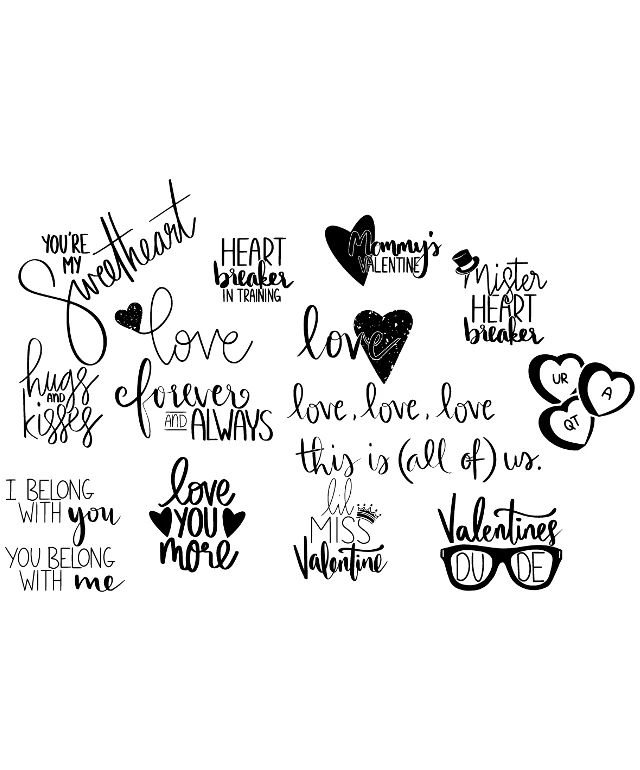 YOU'RE
MY
Sweetheart
HEART
breaker
IN TRAINING
Mommy's
VALENTINE
Mister
HEART
breaker
love
love
hugs
AND
kisses
forever
AND ALWAYS
love, love, love
this is (all of) us.
UR
A
QT
I BELONG
WITH you
YOU BELONG
WITH me
love
YOU
more
lil
MISS
Valentine
Valentines
DUDE